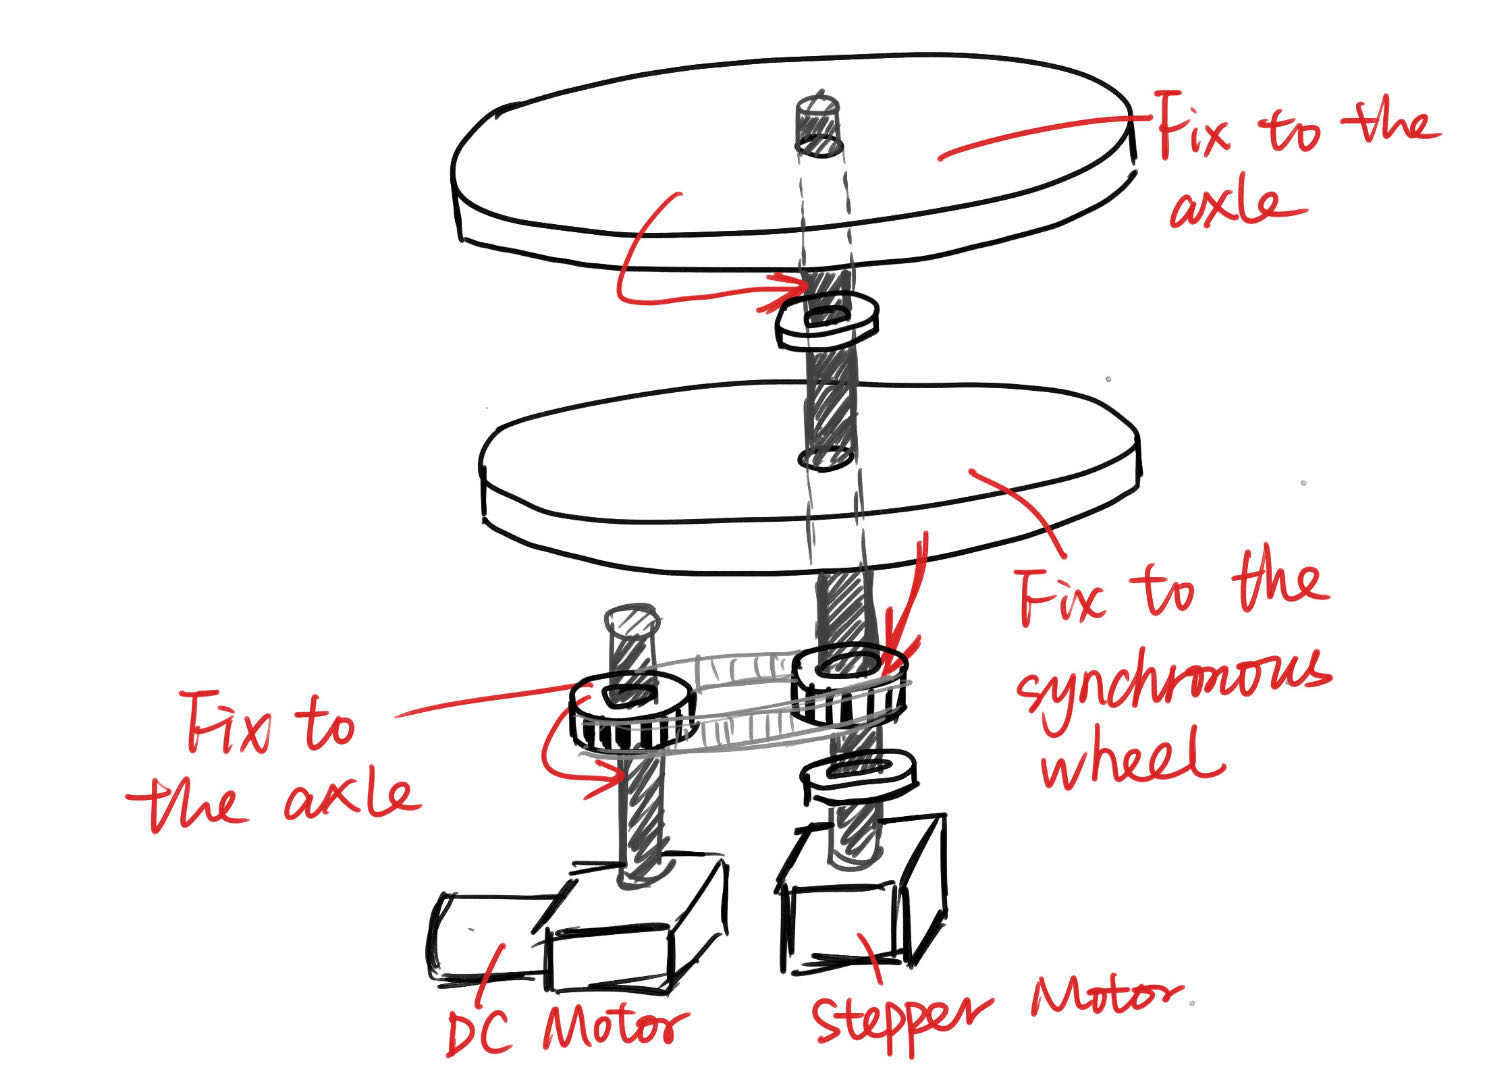 Fix to the
axle
Fix to the
synchronous
wheel
Fix to
the axle
DC Motor
Stepper Motor